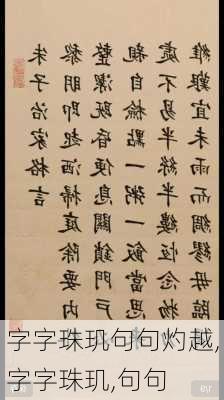 朱子治家格言
黎明即起洒掃庭除要内
整潔既昏便息關鎖門户
親自檢點一粥一飯當思
處不易半絲半縷恒念物
維艱宜未雨而綢繆毋
字字珠玑句句灼越,
字字珠玑,句句